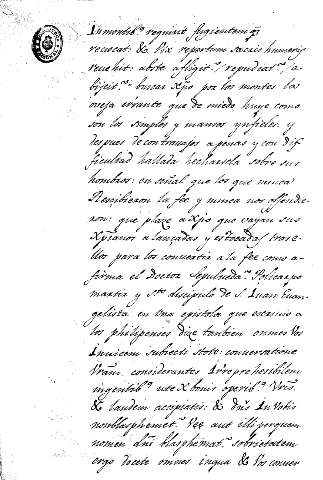 In montib.s requirit fugientem q
revocat: & Vix repertam sacris humeris
revehit: abste afligit.r / repudiat.r / a
bijcit.r: buscar Xpo por los montes las
oveja errante que de miedo huye como
son los simples y mansos ynfieles: y
despues de con trauajo a penas y con dif
ficultad hallada hecharsela sobre sus
hombros: en señal que los que nunca
Resçibieron la fee y nunca nos ofendie
ron: que plaze a Xpo que vayan sus
Xpianos a lançadas y estocadas tras e
llos para los convertir a la fee como a
firma el Doctor Sepulveda. Policarpo
martir y S.to discipulo de S. Juan Evan
gelista en Una epistola que escrivio a
los philipenses dize tambien omnes Vos
Invicem subiecti stote: conversatione
Vram. considerantes Irreprehesiblem
ingentib.s ut ex bonis operib.s Vris
& laudem accipiatis: & dns In Vobis
non blasphemet.r Vee aut illi per quem
nomen dni blasphemat.r sobrietatem
ergo docete omnes inqua & Vos conver